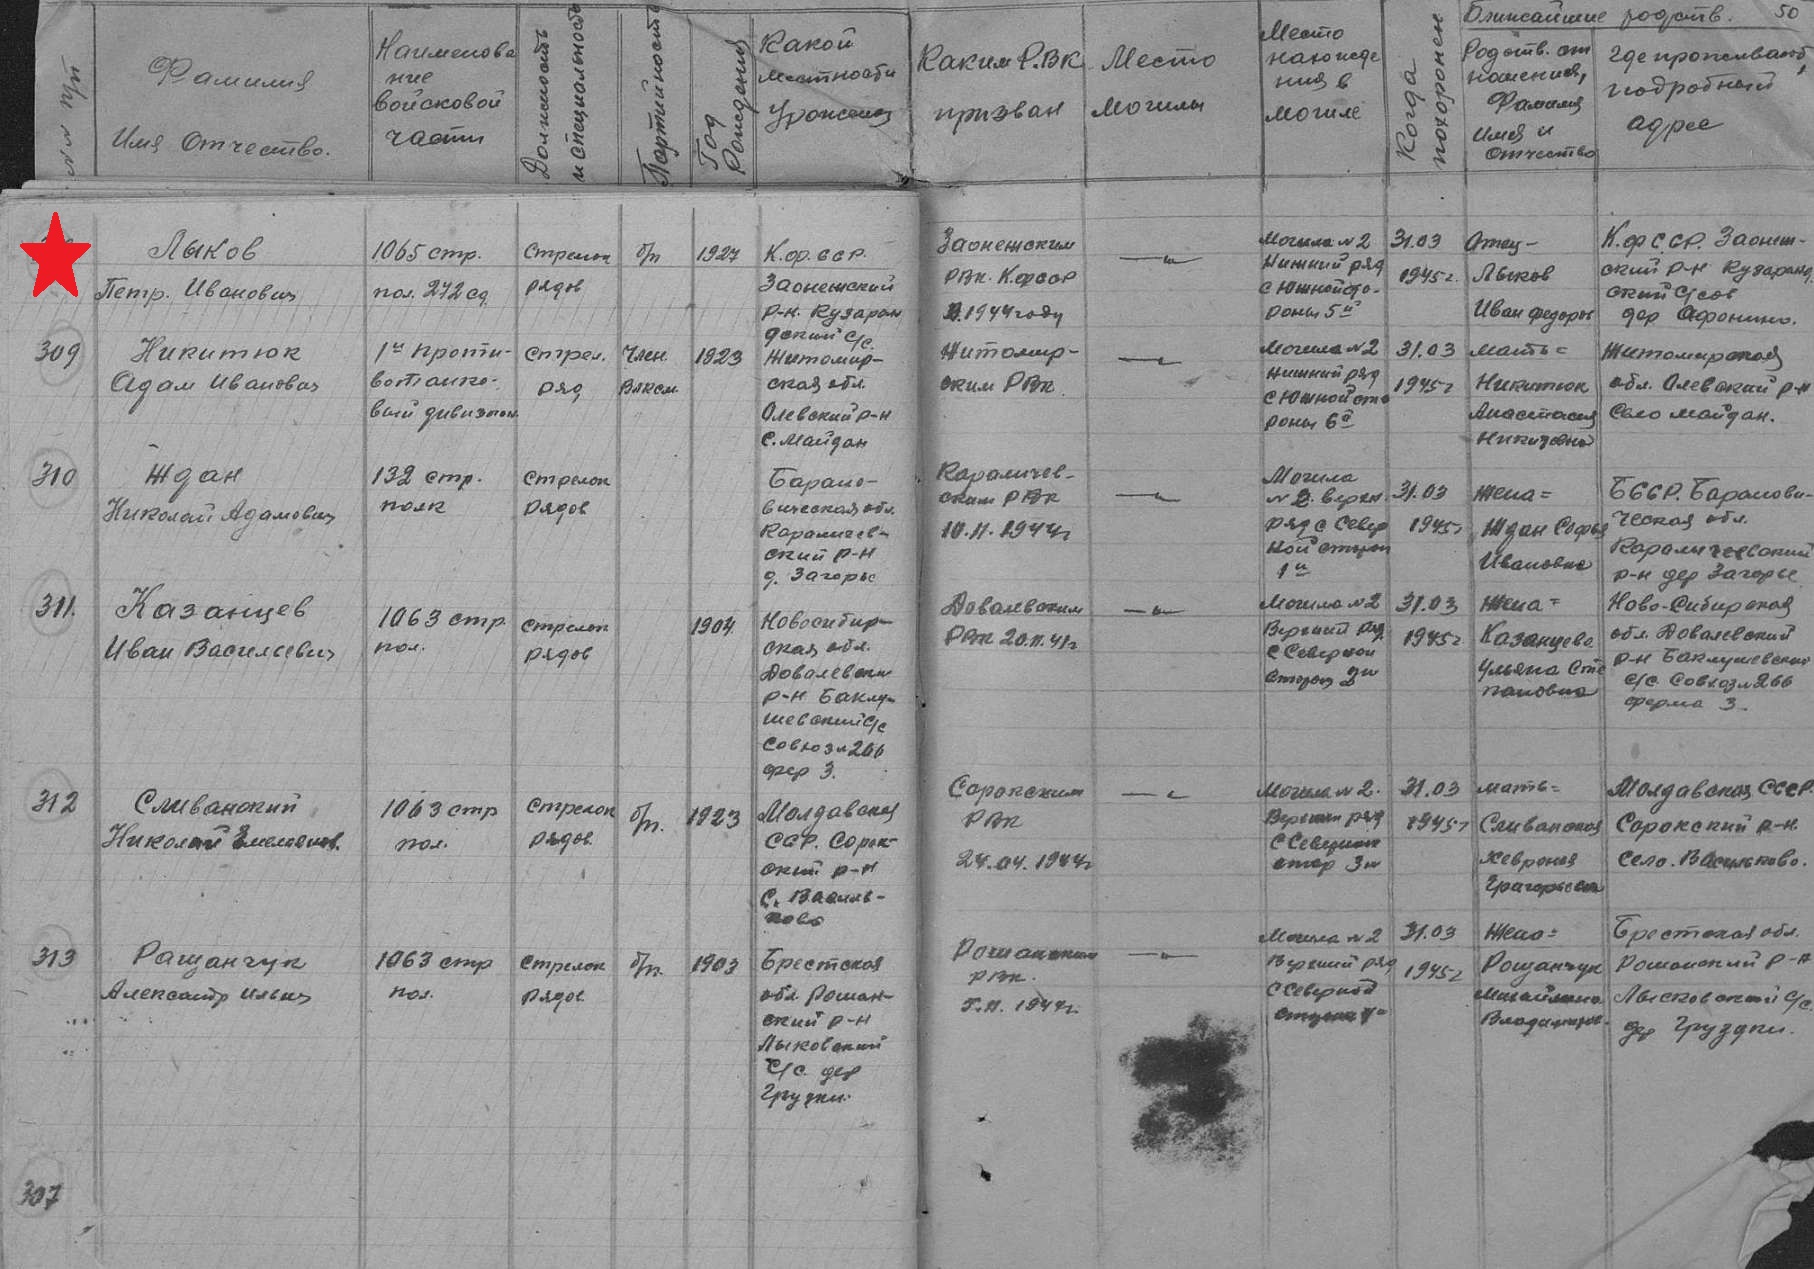 №№ п/п
Фамилия
Имя Отчество.
Наименова
ние
войсковой
части
Должность
и специальность
Партийность
Год
Рождения
Какой
местности
Уроженец
Каким Р.ВК
призван
Место
могилы
Место
нахожде
ния в
могиле
Когда
похоронен
Ближайшие родств. 50
Родств. от
ношения,
Фамилия
Имя и
Отчество
Где проживают,
подробный
адрес
Лыков
Петр. Иванович
1065 стр.
пол. 272 сд
Стрелок
рядов
б/п
1927
К.ф.ССР.
Заонежский
р-н. Кузаран
дский С/с.
Заонежским
РВК. КфССР
В.1944 году
—"—
Могила №2
Нижний ряд
с Южной сто-
роны 5й
31.03
1945г.
Отец-
Лыков
Иван Федоров
К.ф ССР. Заонеж-
ский р-н Кузаранд
ский С/сов
дер Афонино.
309
Никитюк
Адам Иванович
1й проти-
вотанко-
вый дивизион
Стрел.
ряд
Член
ВЛКСМ
1923
Житомир-
ская обл.
Олевский р-н
с. Майдан
Житомир-
ским РВК.
—"—
Могила №2
Нижний ряд
с Южной сто
роны 6й
31.03
1945г
Мать=
Никитюк
Анастасия
Никитовна
Житомирская
обл. Олевский р-н
Село Майдан.
310
Ждан
Николай Адамович
132 стр.
полк
Стрелок
рядов
Барано-
вическая обл.
Кареличев-
ский р-н
д. Загорье
Кареличев-
ским РВК
10.11.1944г
—"—
Могила
№2. верхн.
ряд с Север
ной сторон
1й
31.03
1945г
Жена=
Ждан Софья
Ивановна
БССР. Баранови-
ческая обл.
Кареличевский
р-н дер Загорье
311.
Казанцев
Иван Васильевич
1063 стр
пол.
Стрелок
рядов
1904
Новосибир-
ская обл.
Доволевский
р-н Баклу-
шевский С/с
Совхоз №266
фер 3.
Доволевским
РВК 20.11.41г
—"—
Могила №2
Верхний ряд
с Северной
сторон 2й
31.03
1945г.
Жена=
Казанцева
Ульяна Сте
пановна
Ново-Сибирская
обл. Доволевский
р-н Баклушевский
С/с. Совхоз №266
ферма 3.
312
Сливанский
Николай
1063 стр
пол.
Стрелок
рядов
б/п.
1923
Молдавская
ССР. Сорок-
ский р-н
с. Василь-
ково
Сорокским
РВК
24.04.1944г
—"—
Могила №2.
Верхний ряд
с Северной
стор 3й
31.03
1945г
Мать=
Сливанская
Хеврония
Григорьевн
Молдавская ССР.
Сорокский р-н
Село. Васильково.
313
Рощанчук
Александр Ильич
1063 стр
пол.
Стрелок
рядов
б/п.
1903
Брестская
обл. Рожан-
ский р-н
Лысковский
С/с. дер
Груздки.
Рожанским
РВК.
1944г.
—"—
Могила №2
Верхний ряд
с Северной
стороны 4й
31.03
1945г
Жена=
Рощанчук
Владимиров.
Брестская обл.
Рожанский р-н
Лысковский С/с.
дер Груздки.
307